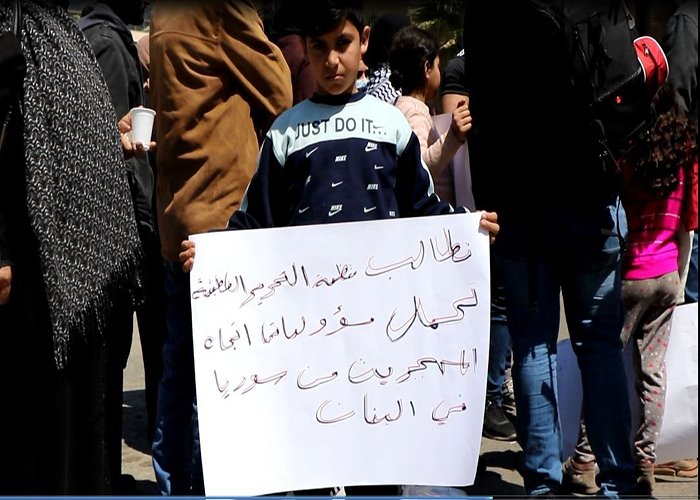 JUST DO IT...
NIKE
NIKE
NIKE
NIKE
NIKE
نطالب منظمة التحرير الفلسطينية
لتحمل مسؤولياتها اتجاه
المهجرين من سوريا
في البنان